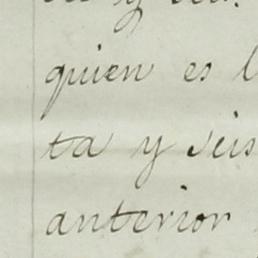 quien es l
ta y seis
anterior